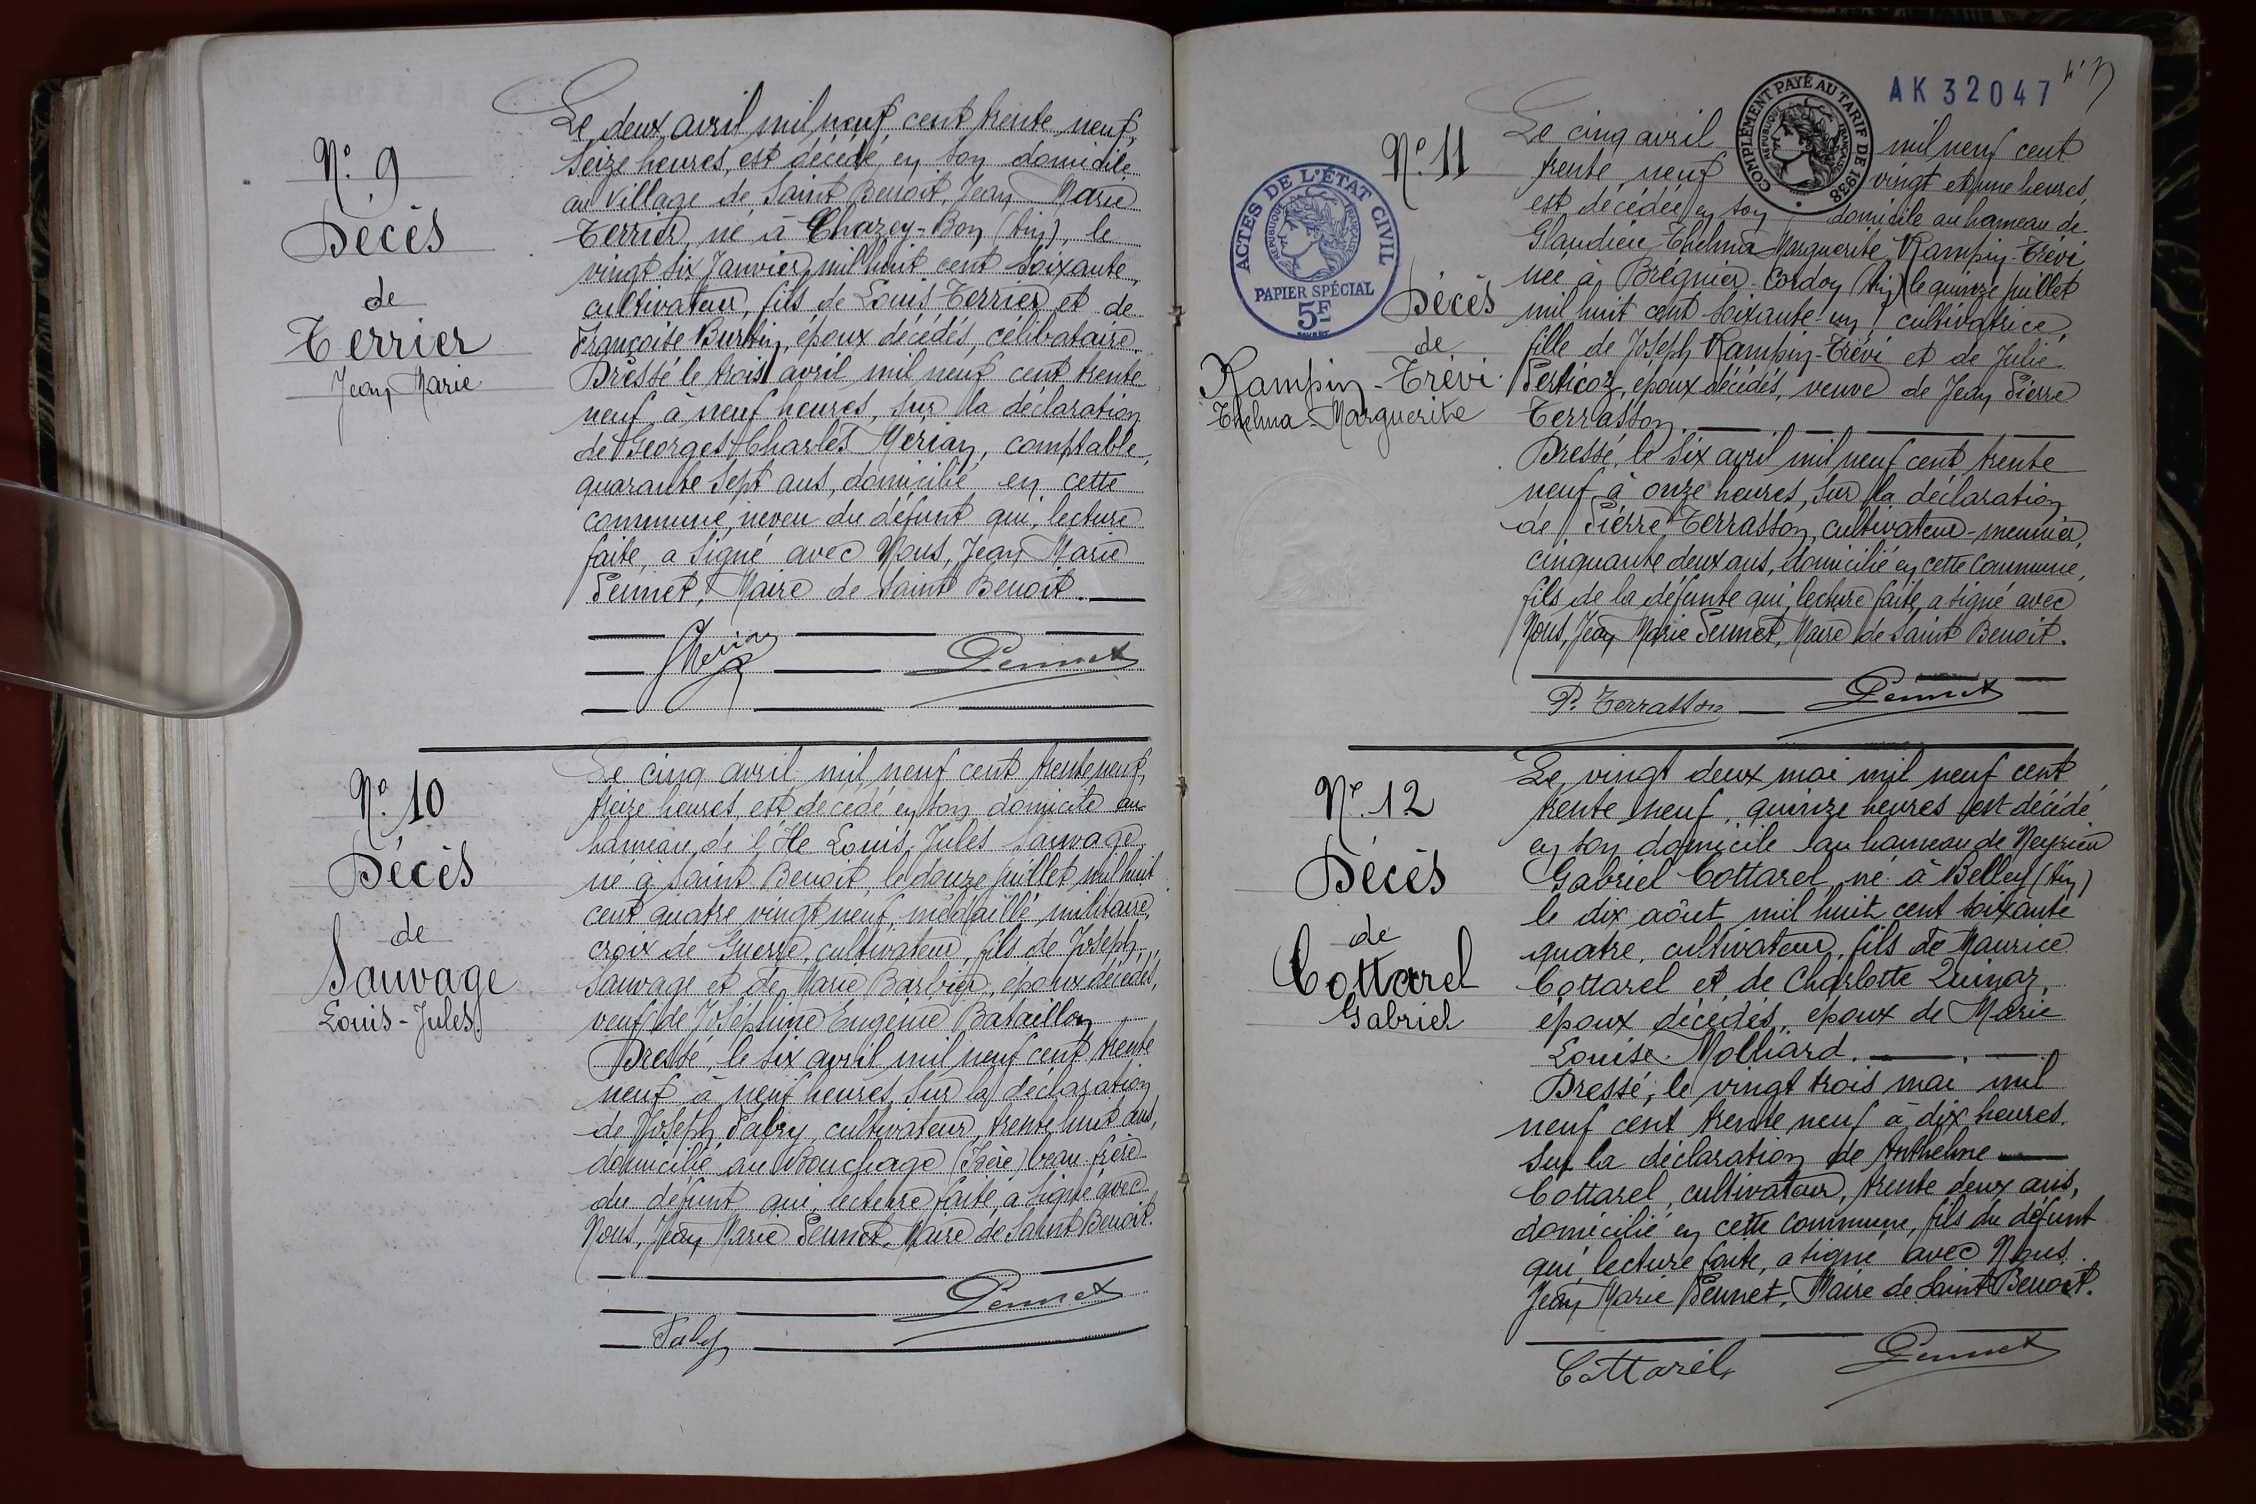 N° 9
Décès
de
Terrier
Jean Marie
Le deux avril mil neuf cent trente neuf,
seize heures, est décédé en son domicile
au Village de Saint Benoit, Jean Marie
Terrier, né à Chazey-Bon (Ain), le
vingt six Janvier mil huit cent soixante,
cultivateur, fils de Louis Terrier et de
Françoise Burtin, époux décédés, célibataire.
Dressé le trois avril mil neuf cent trente
neuf à neuf heures, sur la déclaration
de Georges Charles Mérian, comptable,
quarante sept ans, domicilié en cette
commune, neveu du défunt qui, lecture
faite, a signé avec Nous, Jean Marie
Pennet, Maire de Saint Benoit.
Pennet
N° 10
Décès
de
Sauvage
Louis-Jules
Le cinq avril mil neuf cent trente neuf,
treize heures, est décédé en son domicile au
hameau de l'Ile Louis Jules Sauvage
né à Saint Benoit, le douze juillet mil huit
cent quatre vingt neuf, médaillé militaire,
croix de Guerre, cultivateur, fils de Joseph
Sauvage et de Marie Barbier, époux décédés,
veuf de Joséphine Eugénie Bataillon
Dressé, le six avril mil neuf cent trente
neuf à neuf heures, sur la déclaration
de Joseph Faby, cultivateur, trente huit ans,
domicilié au Bouchage (Isère) beau-frère
du défunt qui, lecture faite, a signé avec
Nous, Jean Marie Pennet, Maire de Saint Benoit.
Pennet
Faby
AK 32047
COMPLÉMENT PAYÉ AU TARIF DE 1938
RÉPUBLIQUE FRANÇAISE
ACTES DE L'ÉTAT CIVIL
RÉPUBLIQUE FRANÇAISE
PAPIER SPÉCIAL
5F
N° 11
Décès
de
Rampin-Trévi
Thelma-Marguerite
Le cinq avril mil neuf cent
trente neuf vingt et une heures,
est décédée en son domicile au hameau de
Glandieu Thelma Marguerite Rampin-Trévi
née à Brégnier-Cordon (Ain) le quinze juillet
mil huit cent soixante un, cultivatrice,
fille de Joseph Rampin-Trévi et de Julie
Perticoz, époux décédés, veuve de Jean Pierre
Terrasson.
Dressé, le six avril mil neuf cent trente
neuf à onze heures, sur la déclaration
de Pierre Terrasson, cultivateur-meunier,
cinquante deux ans, domicilié en cette Commune,
fils de la défunte qui, lecture faite, a signé avec
Nous, Jean Marie Pennet, Maire de Saint Benoit.
P. Terrasson Pennet
N° 12
Décès
de
Cottarel
Gabriel
Le vingt deux mai mil neuf cent
trente neuf, quinze heures est décédé
en son domicile au hameau de Neyrieu
Gabriel Cottarel né à Belley (Ain)
le dix août mil huit cent soixante
quatre, cultivateur, fils de Maurice
Cottarel et de Charlotte Quinaz,
époux décédés, époux de Marie
Louise Molliard.
Dressé, le vingt trois mai mil
neuf cent trente neuf à dix heures.
Sur la déclaration de Anthelme
Cottarel, cultivateur, trente deux ans,
domicilié en cette commune, fils du défunt
qui, lecture faite, a signé avec Nous
Jean Marie Pennet, Maire de Saint Benoit.
Cottarel Pennet